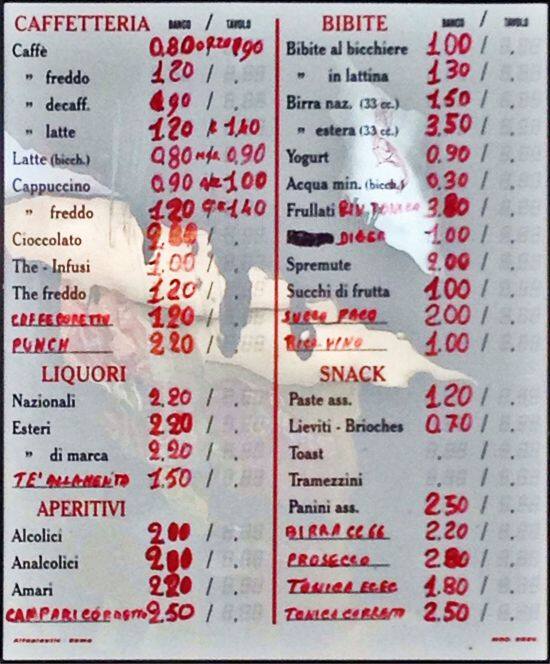 CAFFETTERIA BANCO / TAVOLO
Caffè 0.80 ORZO 0.90
" freddo 1.20 /
" decaff. 0.90 /
" latte 1.20 / 1.40
Latte (bicch.) 0.80 0.90
Cappuccino 0.90 1.00
" freddo 1.20 1.40
Cioccolato 2.00 /
The - Infusi 1.00 /
The freddo 1.20 /
CAFFECORRETTO 1.20 /
PUNCH 2.20 /
LIQUORI
Nazionali 2.20 /
Esteri 2.20 /
" di marca 2.20 /
TE' ALLA MENTA 1.50 /
APERITIVI
Alcolici 2.00 /
Analcolici 2.00 /
Amari 2.20 /
CAMPARI CORRETTO 2.50 /
BIBITE BANCO / TAVOLO
Bibite al bicchiere 1.00 /
" in lattina 1.30 /
Birra naz. (33 cc.) 1.50 /
" estera (33 cc.) 3.50 /
Yogurt 0.90 /
Acqua min. (bicch.) 0.30 /
Frullati 3.80 /
DIGER 1.00 /
Spremute 2.00 /
Succhi di frutta 1.00 /
SUCCO PAGO 2.00 /
BICC. VINO 1.00 /
SNACK
Paste ass. 1.20 /
Lieviti - Brioches 0.70 /
Toast /
Tramezzini /
Panini ass. 2.50 /
BIRRA CC 66 2.20 /
PROSECCO 2.80 /
TONICA 1.80 /
TONICA CORRETTA 2.50 /